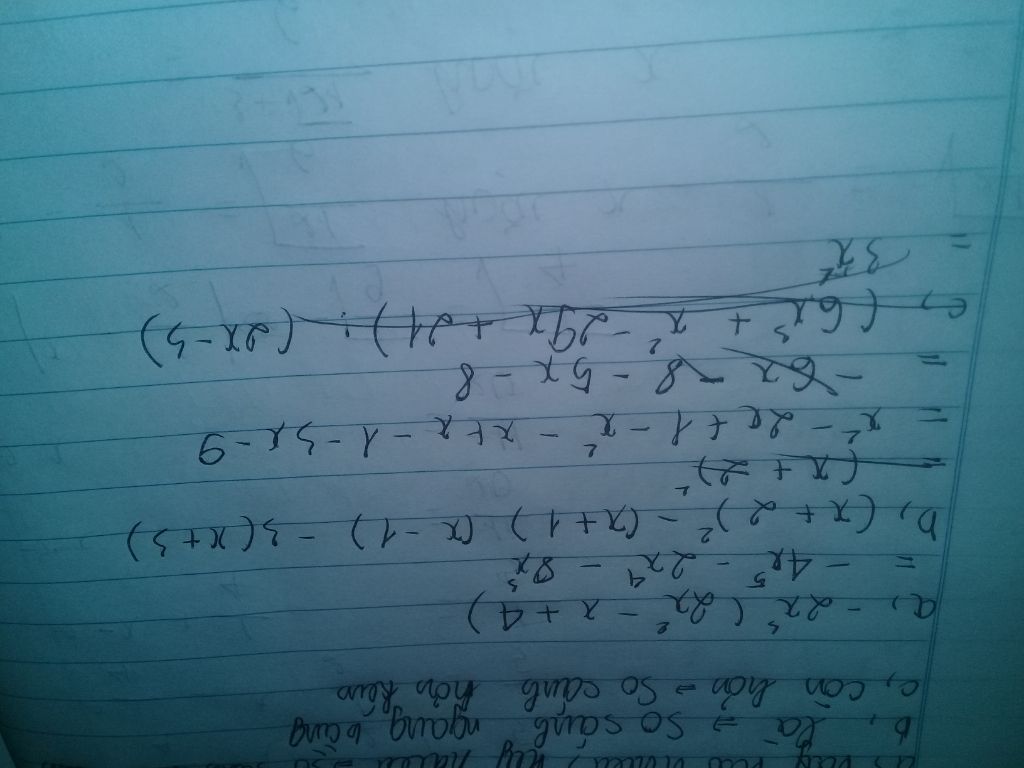 b, là => so sánh ngang bằng
c, còn hơn => so sánh hơn kém
a, - 2x³ (2x² - x + 4)
= - 4x⁵ - 2x⁴ - 8x³
b, (x + 2)² - (x+1) (x-1) - 3(x+3)
= (x + 2)²
= x² - 2x + 1 - x² - x + x - 1 - 3x - 9
= - 6x - 8 - 5x - 8
c, (6x³ + x² - 29x + 21) : (2x - 3)
= 3x²